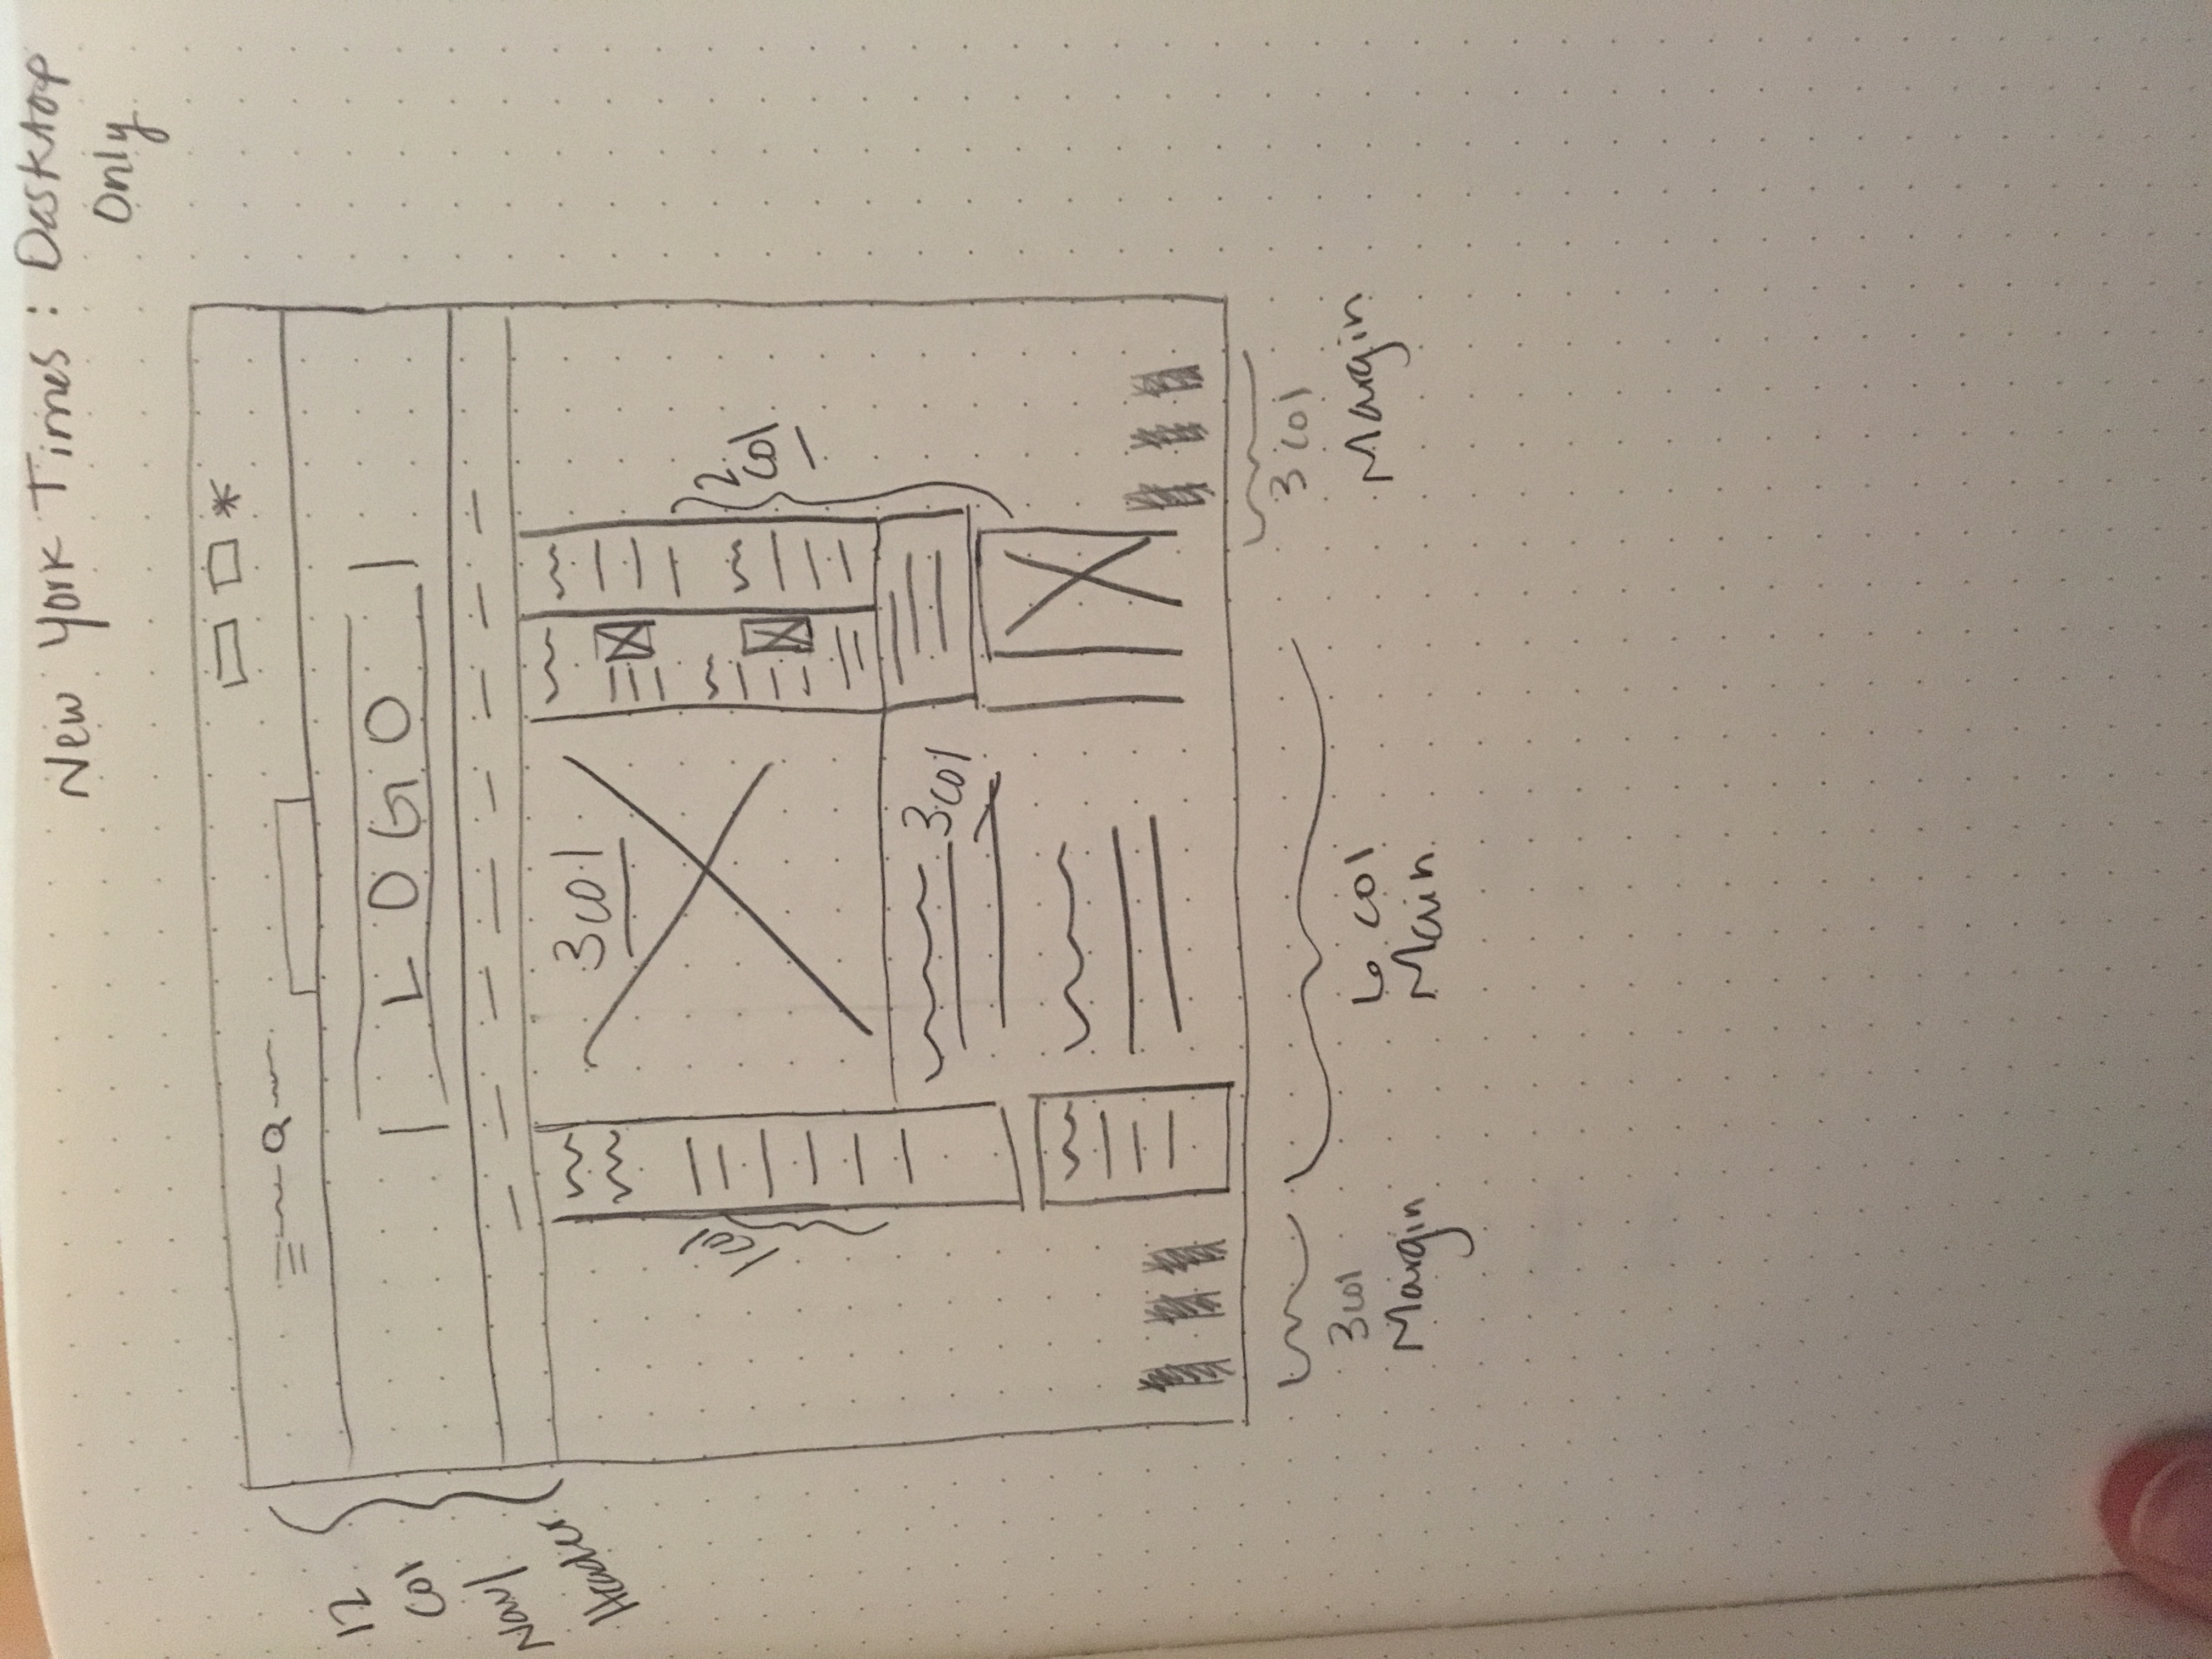 New York Times : Desktop
Only
12
Col
Nav/
Header
LOGO
3 col
1 col
2
Col
3 col
3 col
Margin
6 col
Main
3 col
Margin